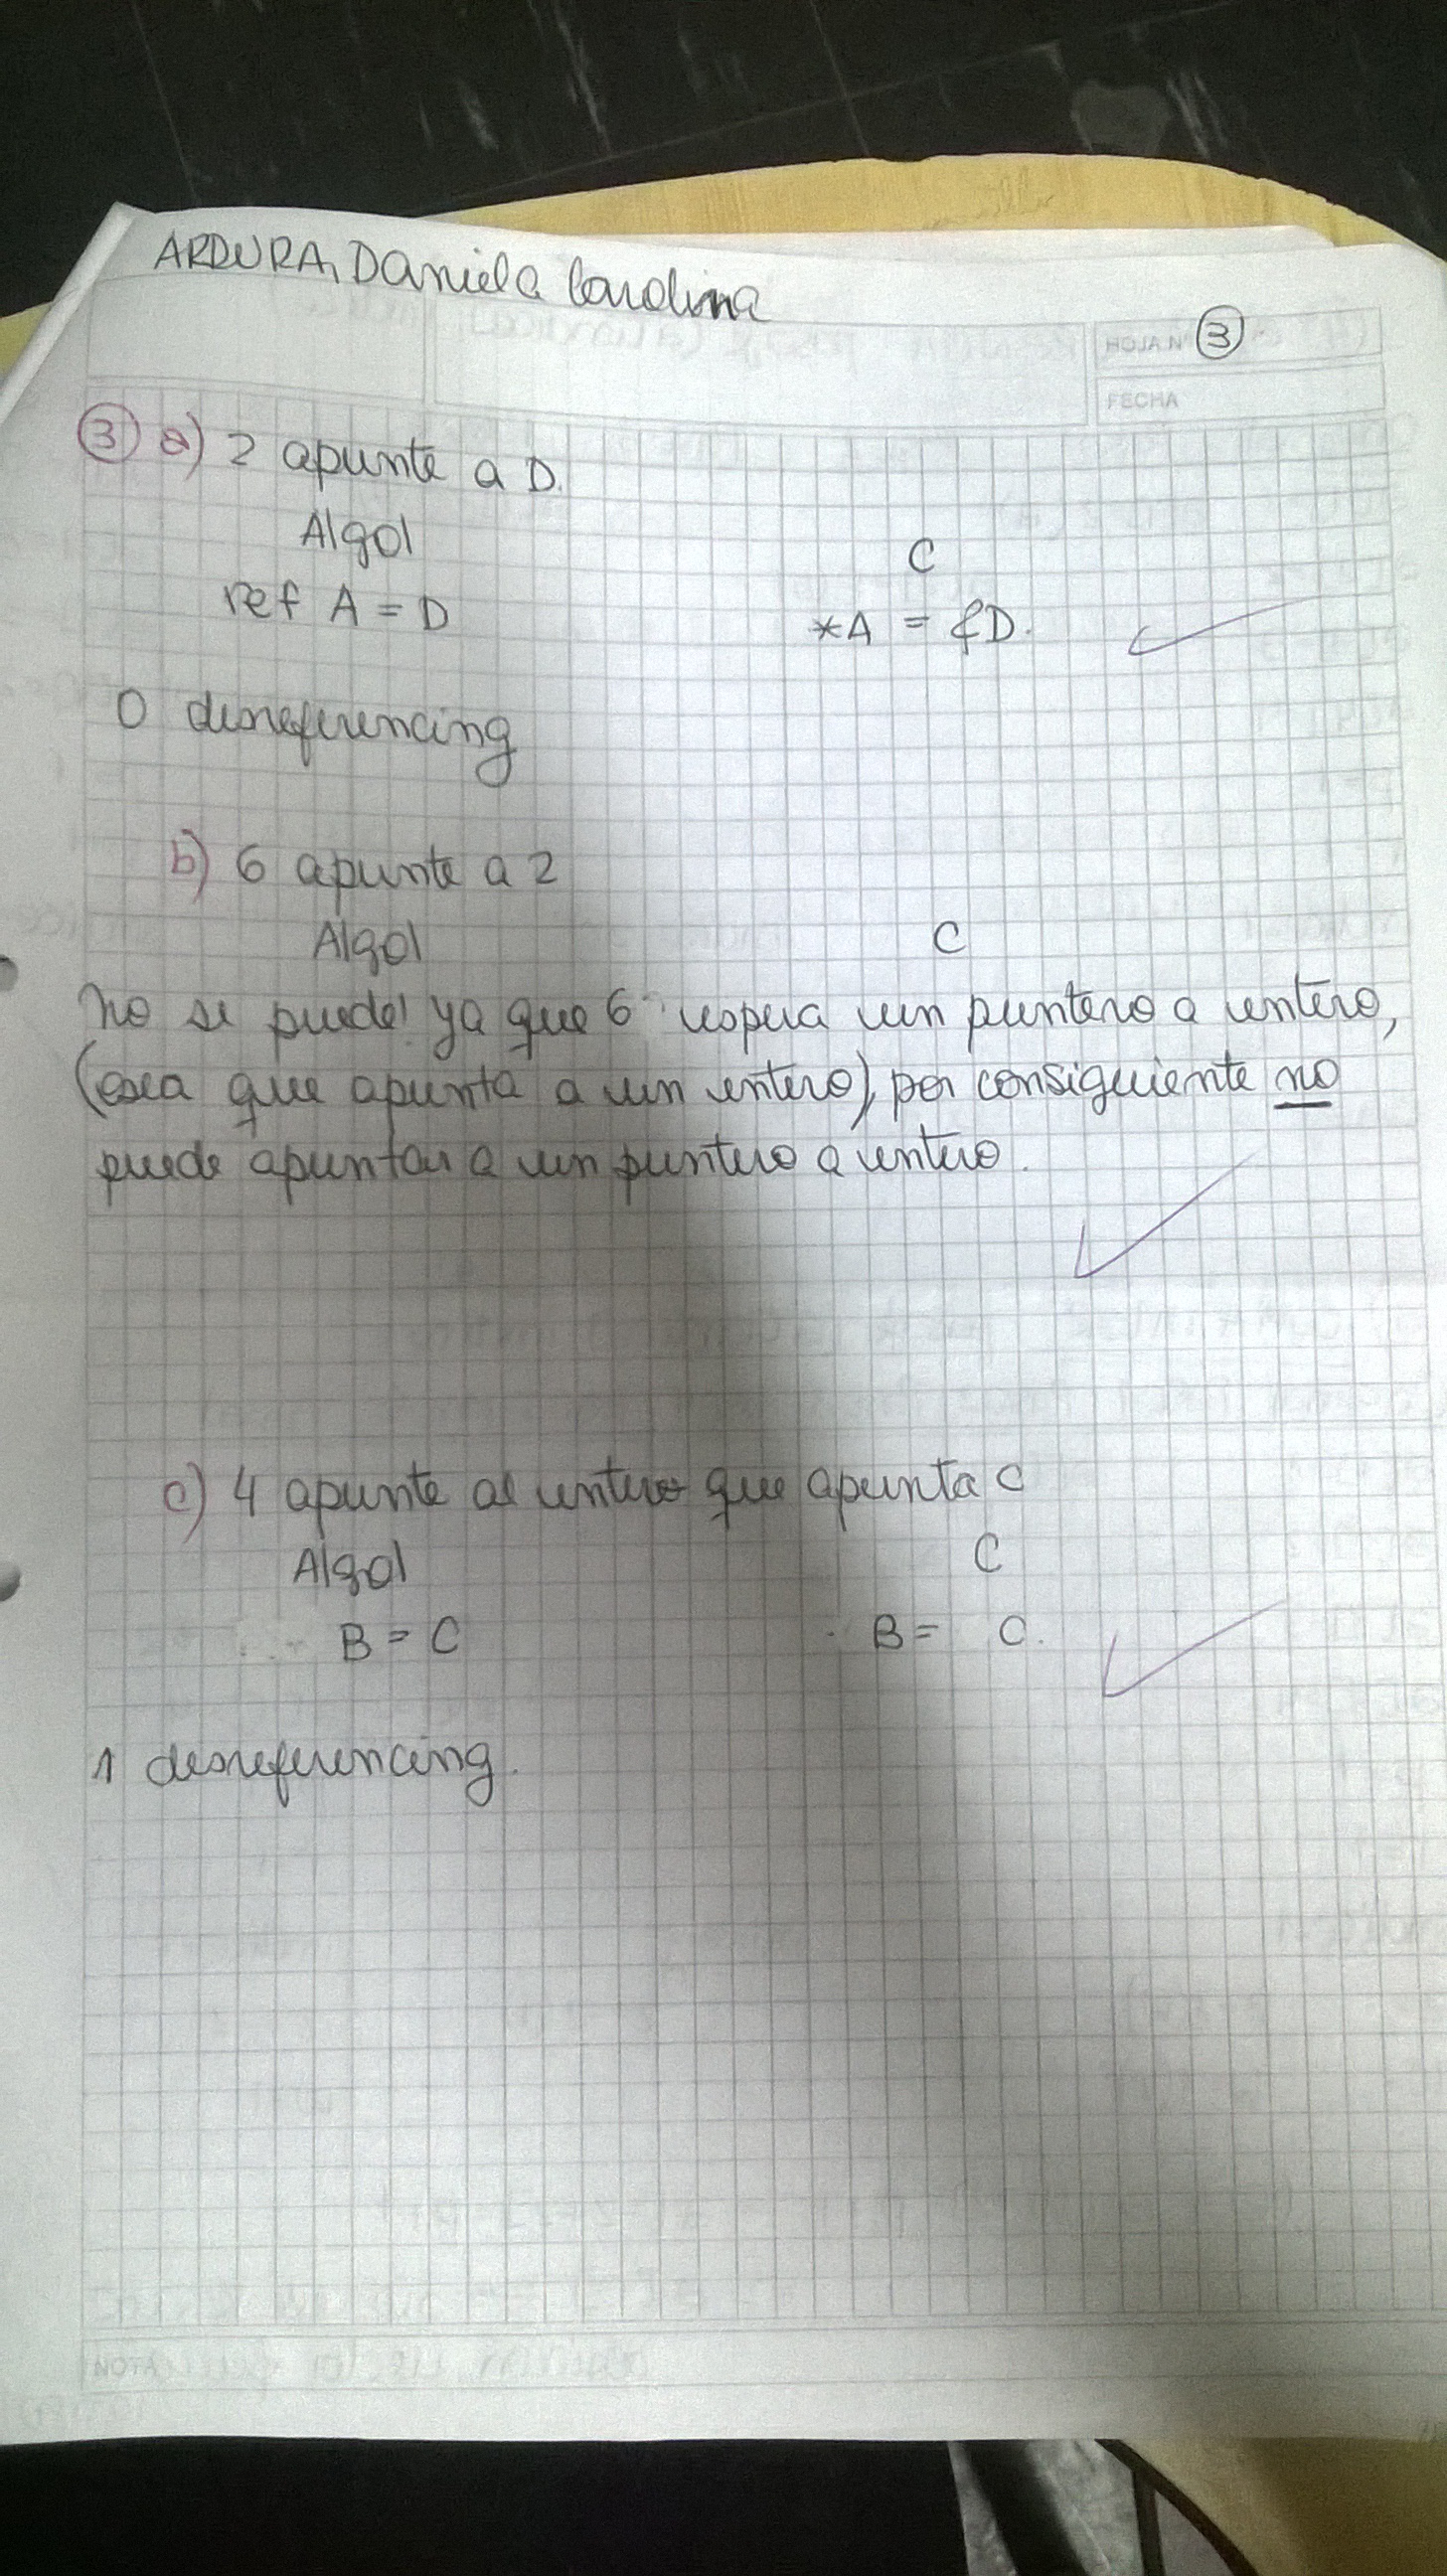 ARDURA, Daniela Carolina
HOJA Nº 3
FECHA
3 a) 2 apunte a D.
Algol C
ref A = D *A = &D.
0 desreferencing
b) 6 apunte a 2
Algol C
No se puede! ya que 6 espera un puntero a entero,
(osea que apunta a un entero), por consiguiente no
puede apuntar a un puntero a entero.
c) 4 apunte al entero que apunta C
Algol C
B = C B = C.
1 desreferencing.